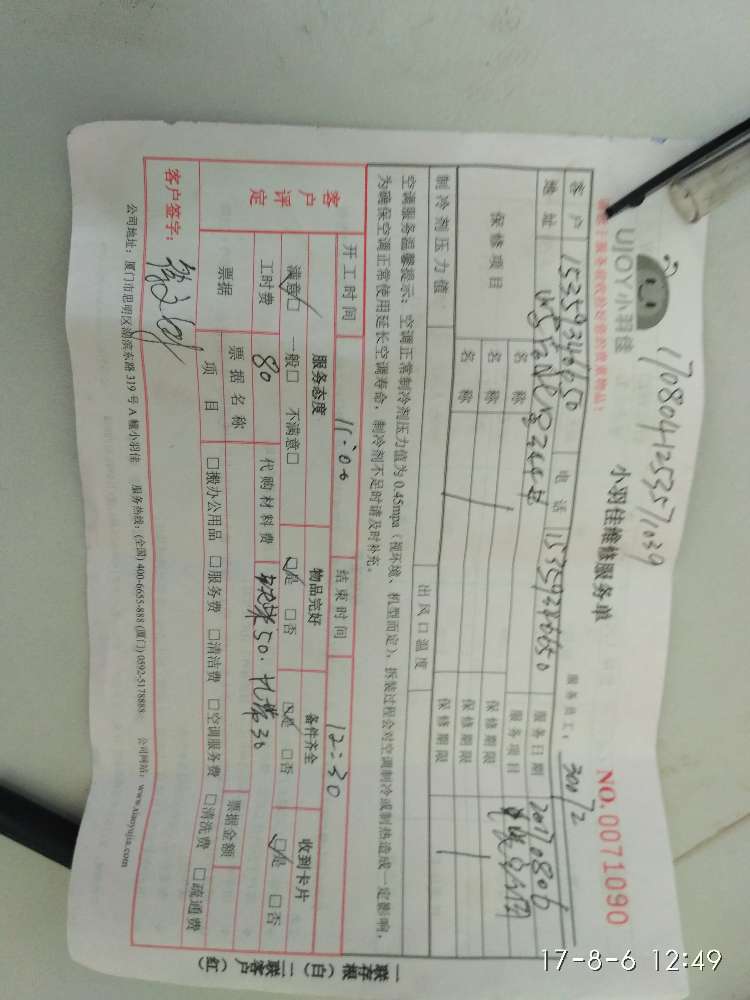 1708041253571039
UJOY小羽佳
小羽佳维修服务单
NO.0071090
服务员工:30072
客户
电话
服务日期 20170806
地址
服务项目
保修项目
名称
保修期限
名称
保修期限
名称
保修期限
制冷剂压力值
出风口温度
空调服务温馨提示:空调正常制冷剂压力值为0.45mpa(视环境、机型而定),拆装过程会对空调制冷或制热造成一定影响,
为确保空调正常使用延长空调寿命,制冷剂不足时请及时补充。
开工时间 11:00 结束时间 12:30
客户评定
服务态度 物品完好 备件齐全 收到卡片
满意□ 一般□ 不满意□ □是 □否 □是 □否 □是 □否
工时费 80 代购材料费
票据 票据名称 票据金额
项目 □搬办公用品 □服务费 □清洁费 □空调服务费 □清洗费 □疏通费
客户签字:
公司地址:厦门市思明区湖滨东路319号A幢小羽佳 服务热线:(全国)400-6655-888 (厦门)0592-5178888 公司网站:www.xiaoyujia.com
一联存根(白)二联客户(红)
17-8-6 12:49